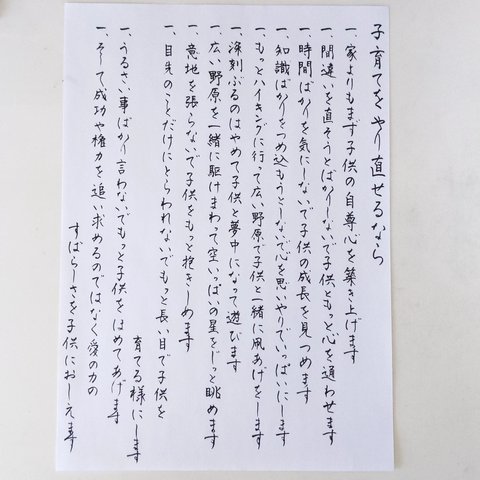 子育てをやり直せるなら
一、家よりもまず子供の自尊心を築き上げます
一、間違いを直そうとばかりしないで子供ともっと心を通わせます
一、時間ばかりを気にしないで子供の成長を見つめます
一、知識ばかりをつめ込もうとしないで心を思いやりでいっぱいにします
一、もっとハイキングに行って広い野原で子供と一緒に凧あげをします
一、深刻ぶるのはやめて子供と夢中になって遊びます
一、広い野原を一緒に駆けまわって空いっぱいの星をじっと眺めます
一、意地を張らないで子供をもっと抱きしめます
一、目先のことだけにとらわれないでもっと長い目で子供を
育てる様にします
一、うるさい事ばかり言わないでもっと子供をほめてあげます
一、そして成功や権力を追い求めるのではなく愛の力の
すばらしさを子供におしえます